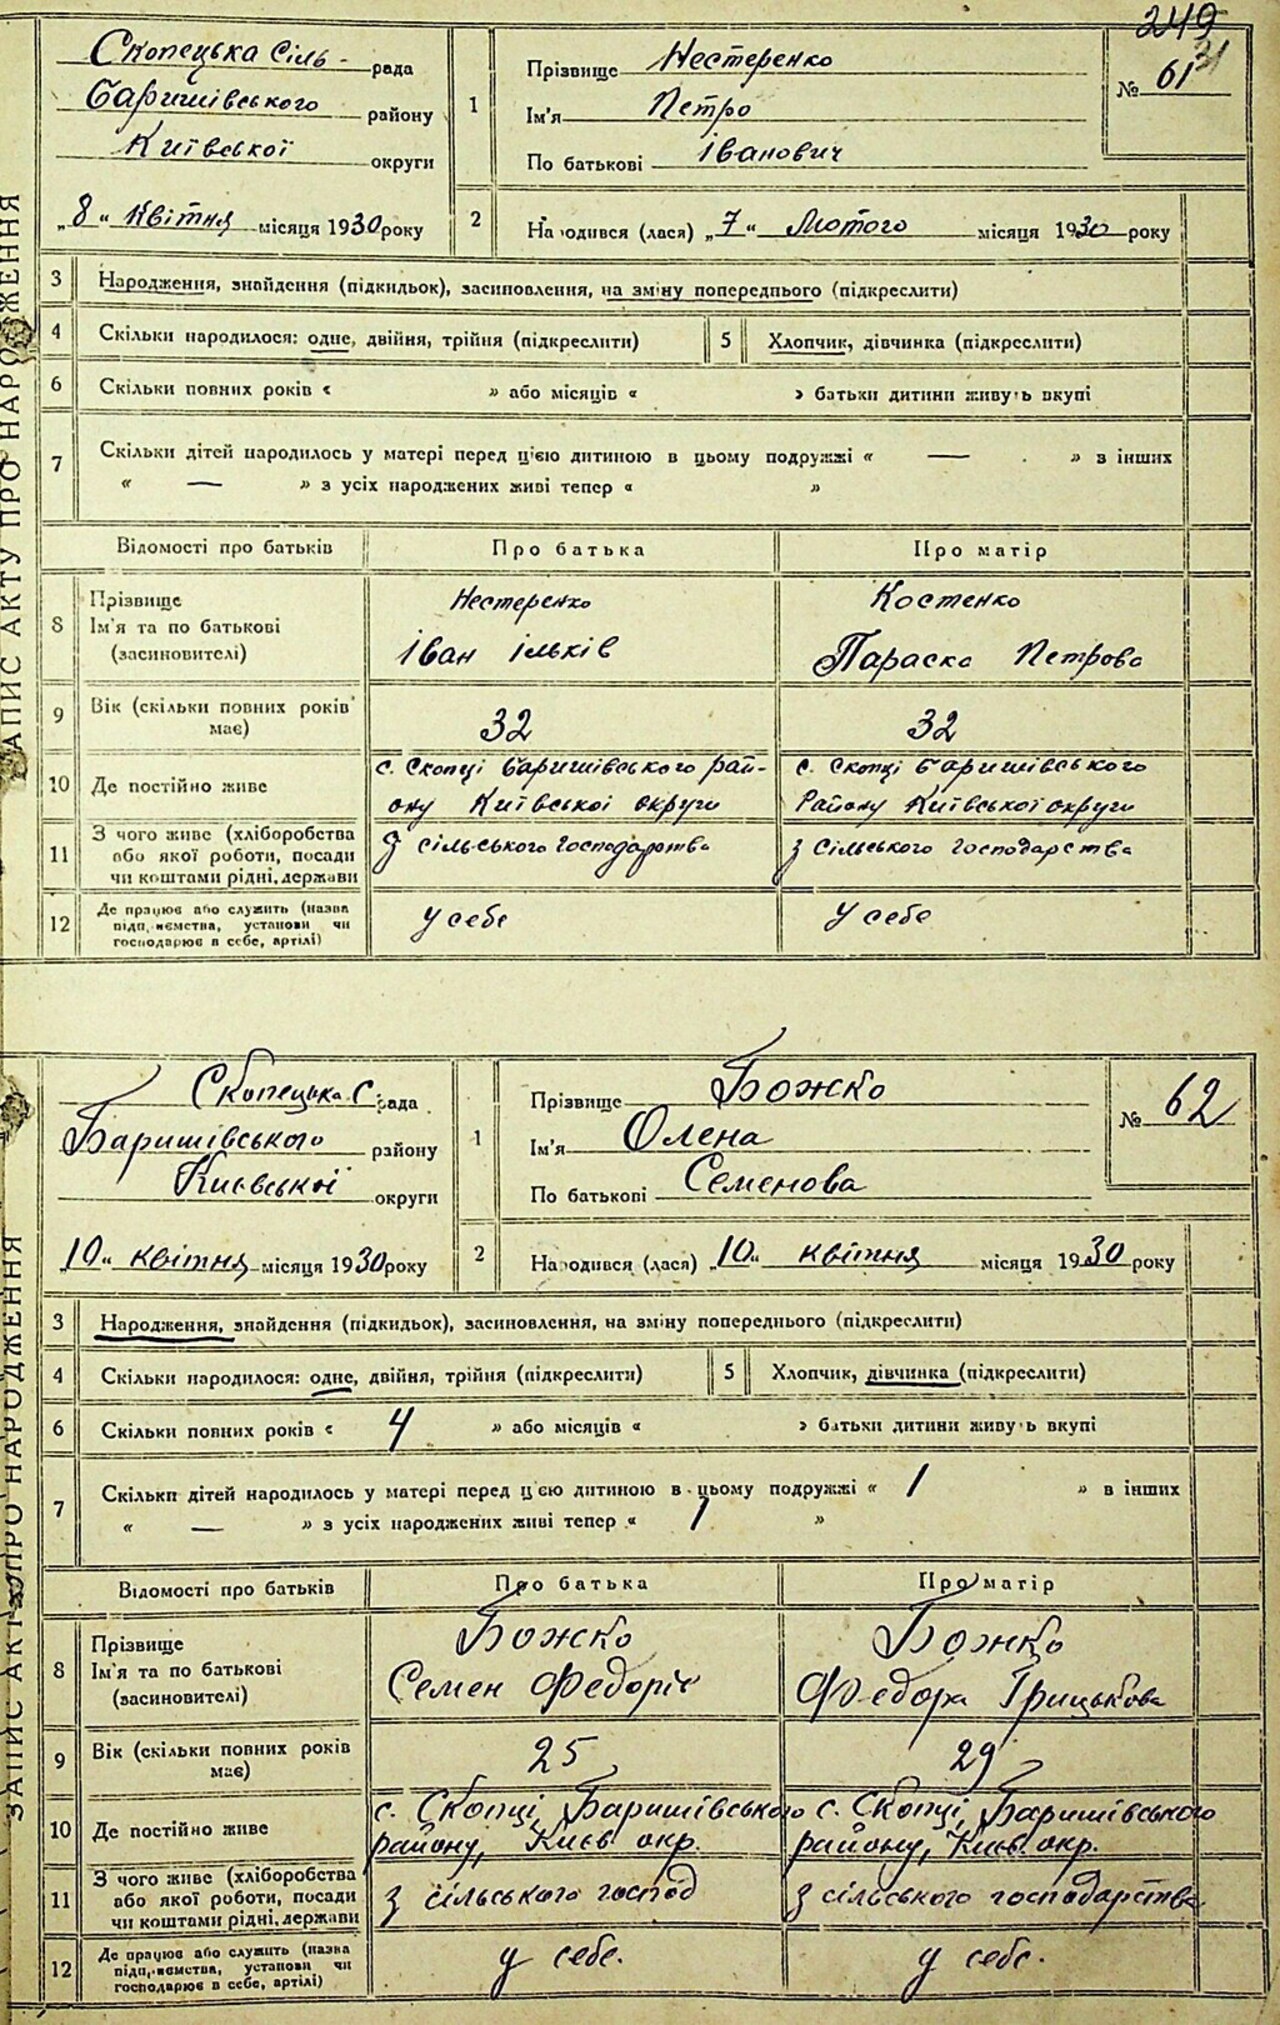 249
31
ЗАПИС АКТУ ПРО НАРОДЖЕННЯ
Скопецька Сіль- рада
Баришівського району
Київської округи
„8“ Квітня місяця 1930 року
1
Прізвище Нестеренко
Ім'я Петро
По батькові Іванович
№ 61
2
Народився (лася) „7“ Лютого місяця 1930 року
3 Народження, знайдення (підкидьок), засиновлення, на зміну попереднього (підкреслити)
4 Скільки народилося: одне, двійня, трійня (підкреслити) 5 Хлопчик, дівчинка (підкреслити)
6 Скільки повних років « » або місяців « » батьки дитини живуть вкупі
7 Скільки дітей народилось у матері перед цією дитиною в цьому подружжі « — » в інших
« — » з усіх народжених живі тепер « »
Відомості про батьків Про батька Про матір
8 Прізвище Нестеренко Костенко
Ім'я та по батькові Іван Ільків Параска Петрова
(засиновителі)
9 Вік (скільки повних років має) 32 32
10 Де постійно живе с. Скопці Баришівського рай- с. Скопці Баришівського
ону Київської округи Району Київської округи
11 З чого живе (хліборобства З сільського господарства З Сільського господарства
або якої роботи, посади
чи коштами рідні, держави
12 Де працює або служить (назва У себе У себе
підприємства, установи чи
господарює в себе, артілі)
ЗАПИС АКТУ ПРО НАРОДЖЕННЯ
Скопецька С. рада
Баришівського району
Киевської округи
„10“ квітня місяця 1930 року
1
Прізвище Божко
Ім'я Олена
По батькові Семенова
№ 62
2
Народився (лася) „10“ квітня місяця 1930 року
3 Народження, знайдення (підкидьок), засиновлення, на зміну попереднього (підкреслити)
4 Скільки народилося: одне, двійня, трійня (підкреслити) 5 Хлопчик, дівчинка (підкреслити)
6 Скільки повних років « 4 » або місяців « » батьки дитини живуть вкупі
7 Скільки дітей народилось у матері перед цією дитиною в цьому подружжі « 1 » в інших
« — » з усіх народжених живі тепер « 1 »
Відомості про батьків Про батька Про матір
8 Прізвище Божко Божко
Ім'я та по батькові Семен Федорів Федора Грицькова
(засиновителі)
9 Вік (скільки повних років має) 25 29
10 Де постійно живе с. Скопці, Баришівського с. Скопці, Баришівського
району, Києв окр. району, Києв. окр.
11 З чого живе (хліборобства З сільського господ З сільського господарства
або якої роботи, посади
чи коштами рідні, держави
12 Де працює або служить (назва у себе. у себе.
підприємства, установи чи
господарює в себе, артілі)